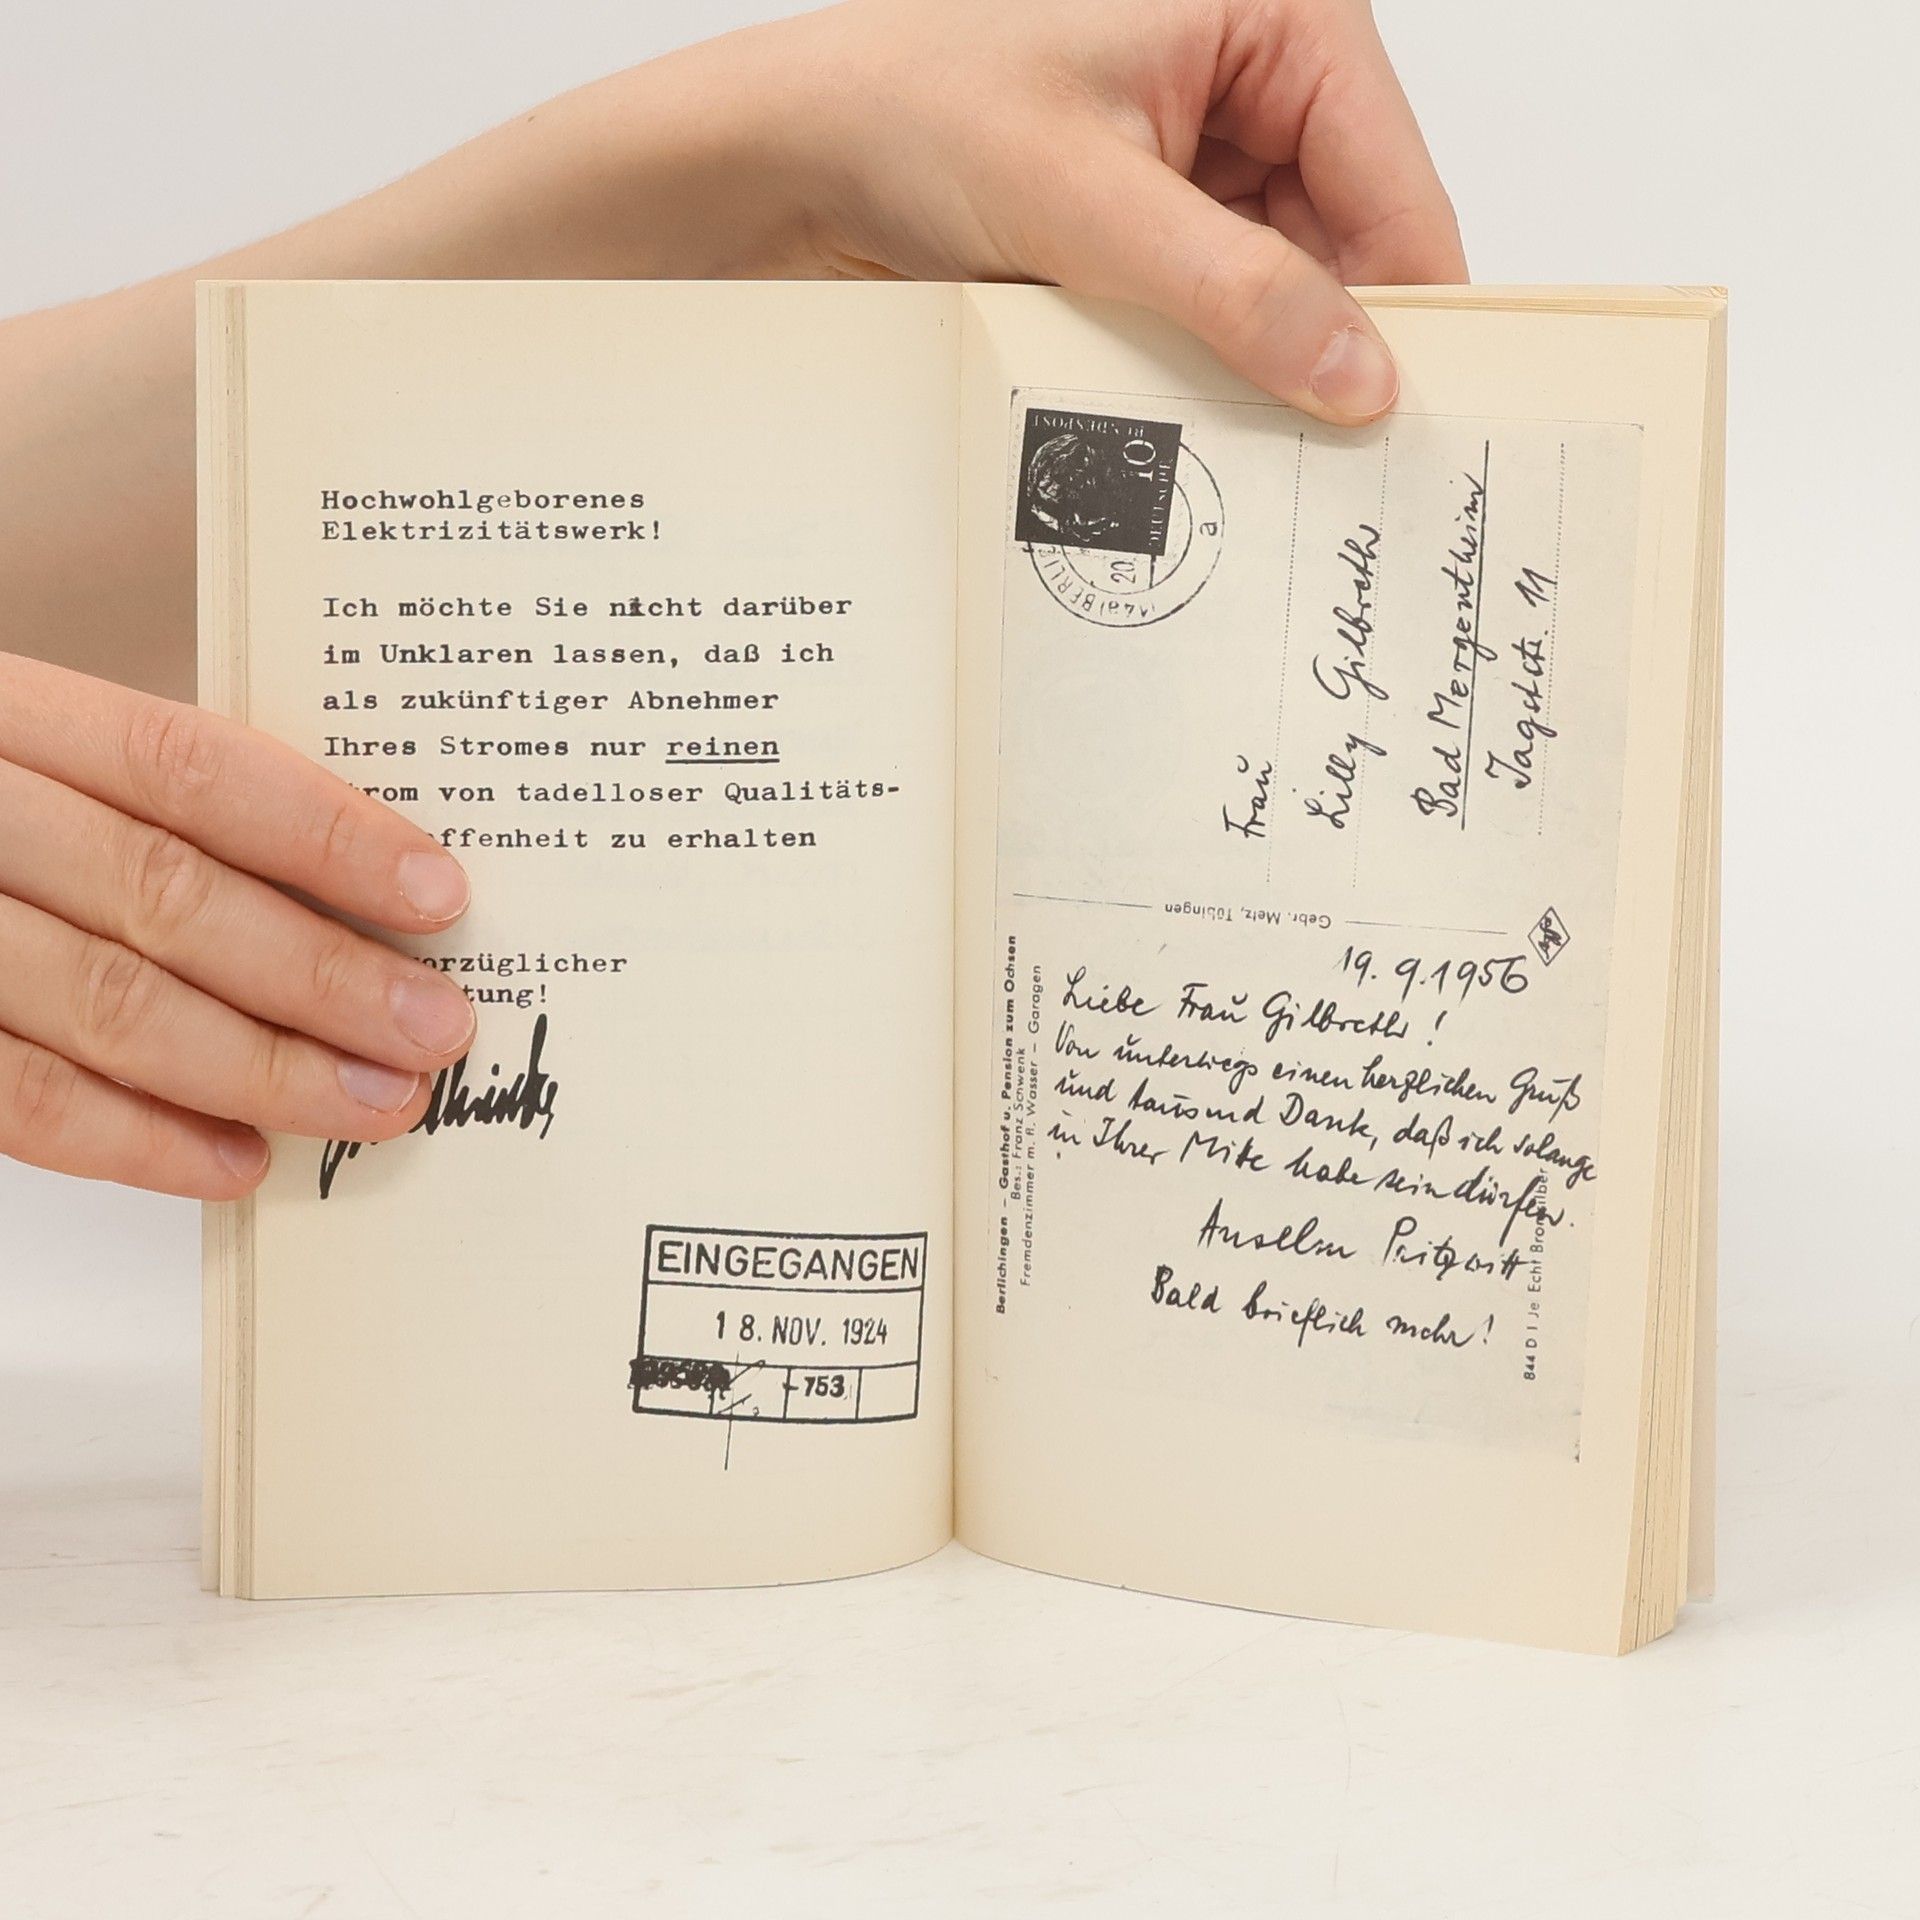 Hochwohlgeborenes
Elektrizitätswerk!
Ich möchte Sie nicht darüber
im Unklaren lassen, daß ich
als zukünftiger Abnehmer
Ihres Stromes nur reinen
rom von tadelloser Qualitäts-
ffenheit zu erhalten
orzüglicher
tung!
EINGEGANGEN
18. NOV. 1924
-753
DEUTSCHE
BUNDESPOST
10
BERLIN
20.
a
Frau
Lilly Gilbreth
Bad Mergentheim
Jagststr. 11
Gebr. Metz, Tübingen
Agfa
Berlichingen – Gasthof u. Pension zum Ochsen
Bes.: Franz Schwenk
Fremdenzimmer m. fl. Wasser – Garagen
19.9.1956
Liebe Frau Gilbreth!
Von unterwegs einen herzlichen Gruß
und tausend Dank, daß ich solange
in Ihrer Mitte habe sein dürfen.
Anselm Pritzwitt
Bald brieflich mehr!
844 D I Je Echt Bromsilber